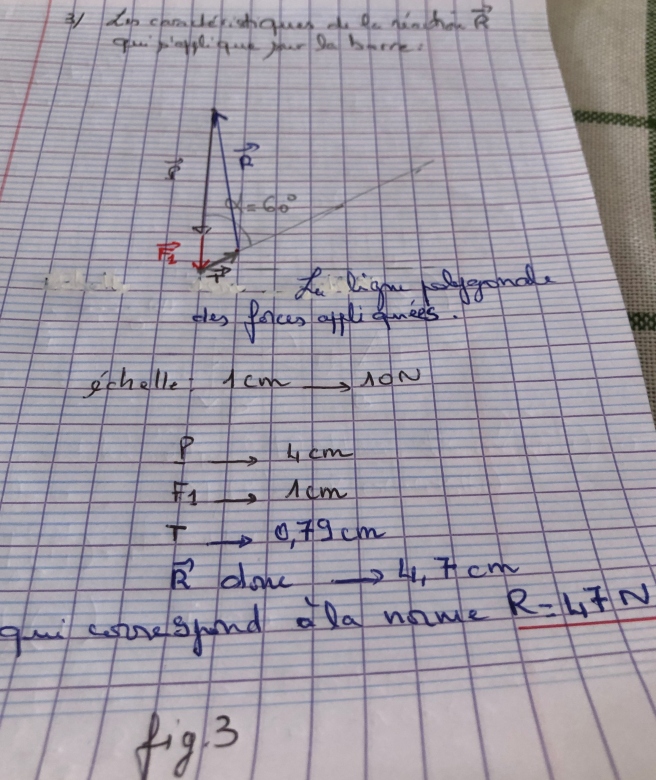 3/ Les caractéristiques de la réaction R
qui s'applique sur la barre.
P
R
α = 60°
F1
T
La ligne polygonale
des forces appliquées.
échelle : 1cm → 10N
P → 4 cm
F1 → 1cm
T → 0,79 cm
R donc → 4,7 cm
qui correspond à la norme R = 47 N
fig.3